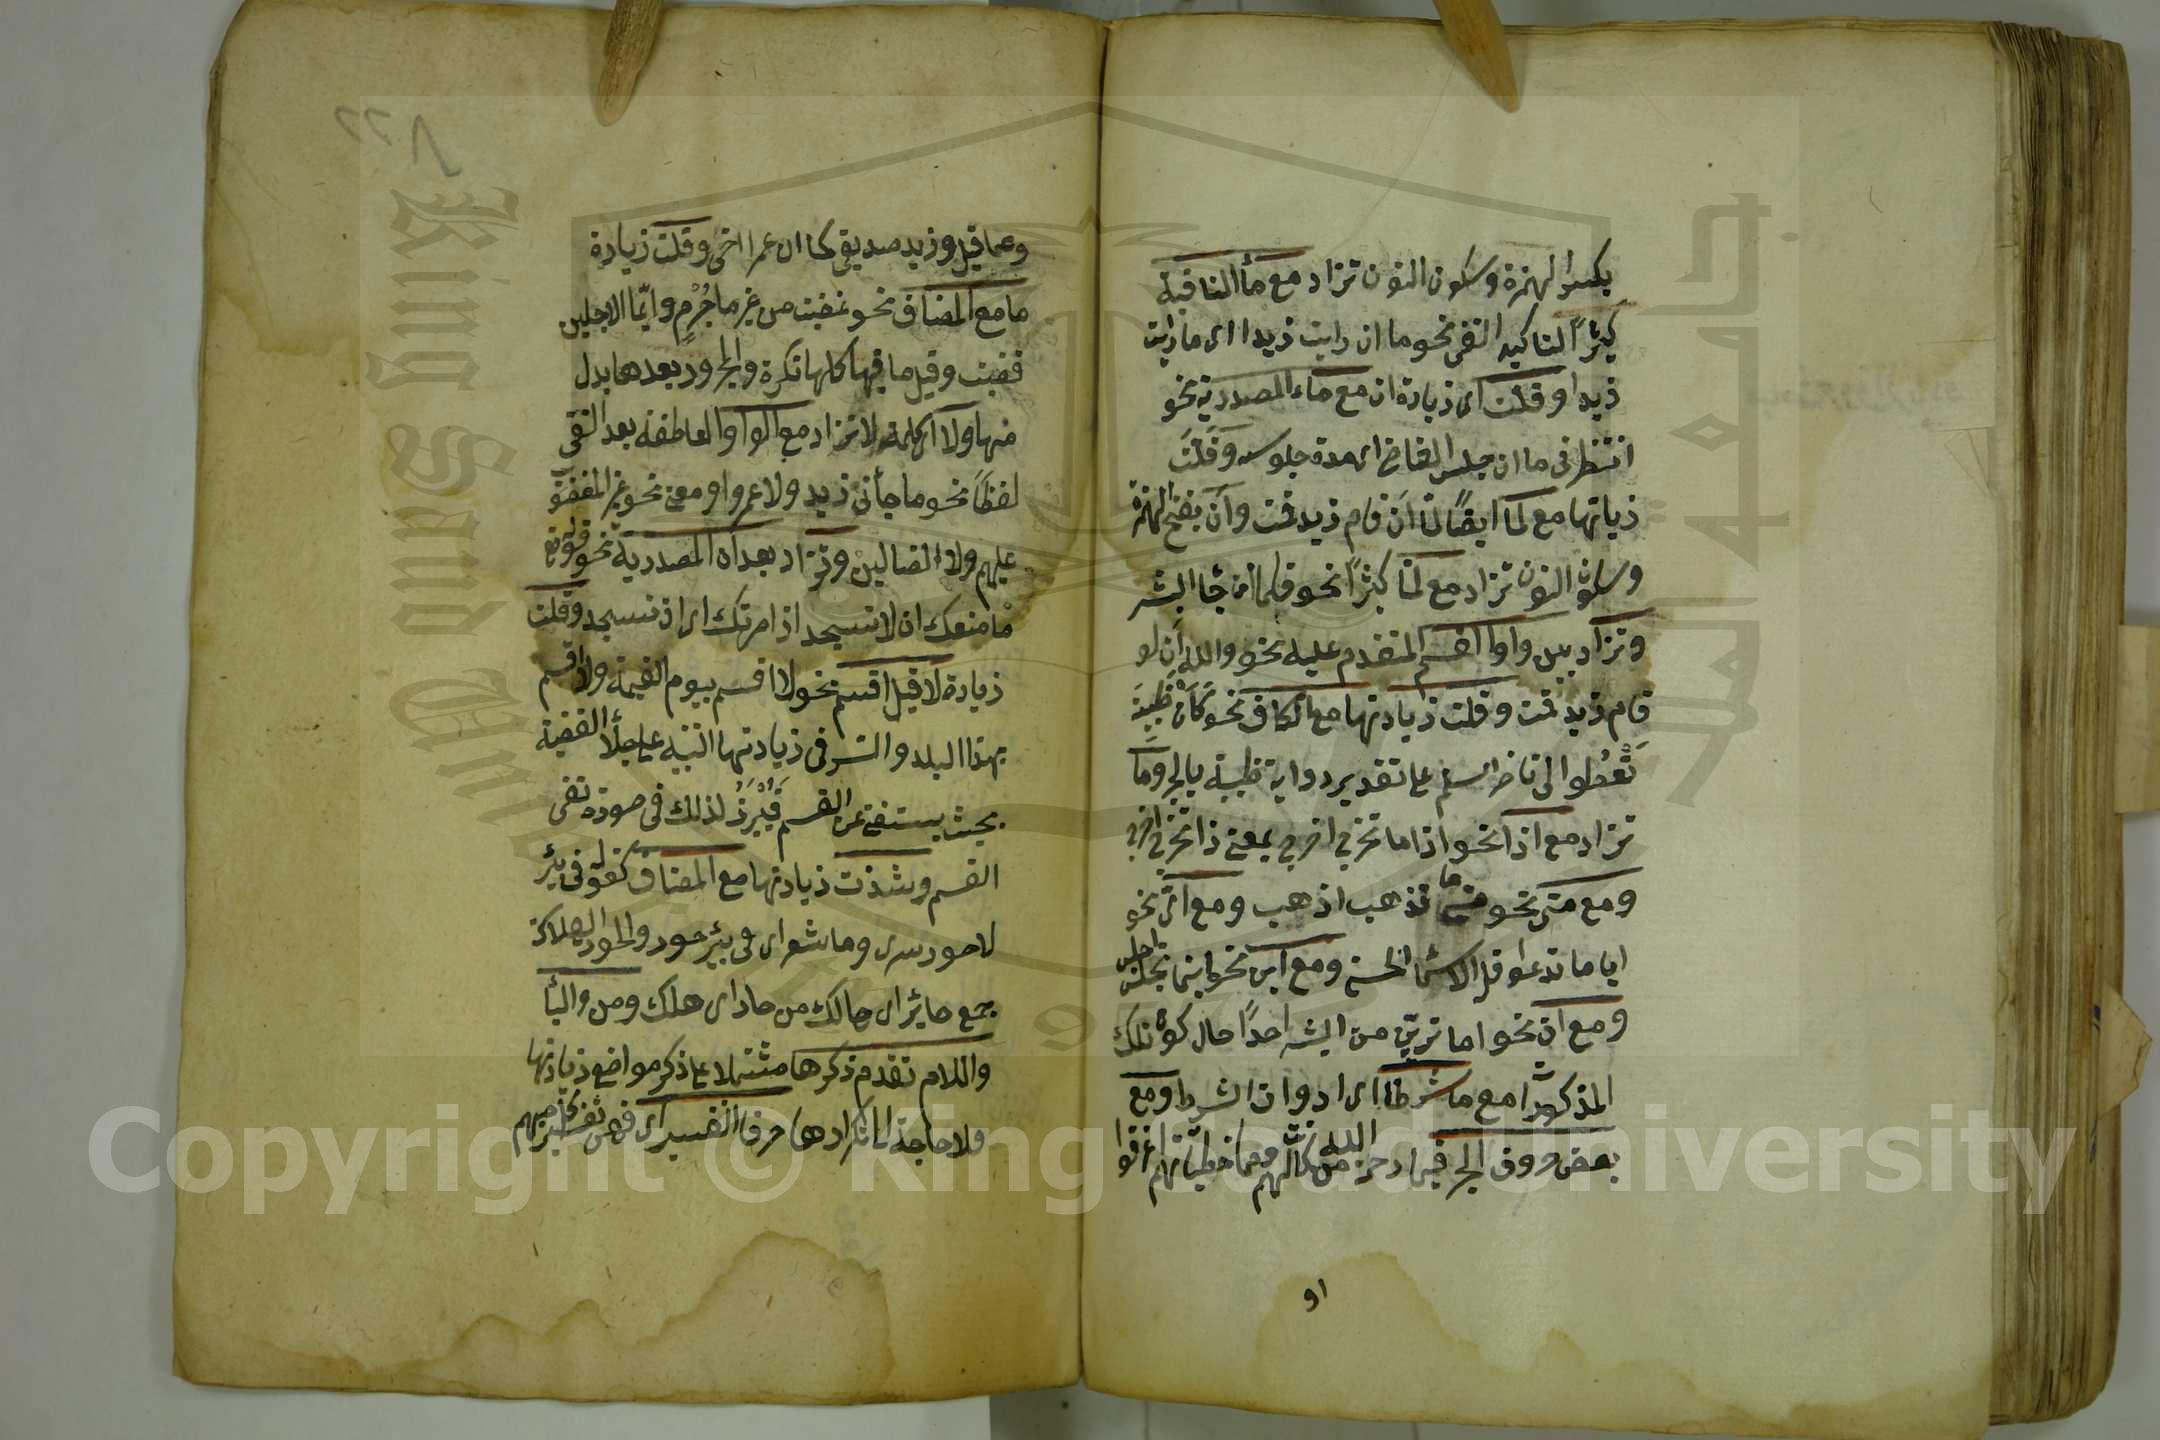 بكسر الهمزة وسكون النون تزاد مع ما النافية
كثيرًا لتاكيد النفى نحو ما ان رايت زيدا اى ما رايت
زيدا وقلت اى زيادة ان مع ماء المصدرية نحو
انتظرنى ما ان جلس القاضى اى مدة جلوسه وقلت
زياتها مع لما ايضًا لما ان قام زيد قمت وأن بفتح الهمزة
وسكون النون تزاد مع لما كثيرًا نحو فلما ان جا البشير
وتزاد بين واو القسم المتقدم عليه نحو والله أن لو
قام زيد قمت وقلت زيادتها مع الكاف نحو كأن ظبية
تعطوا الى ناضر السلم على تقدير رواية ظبية بالجر وما
تزاد مع اذا نحو اذا ما تخرج اخرج بمعنى اذا تخرج اخرج
ومع متى نحو متى ما تذهب اذهب ومع اىّ نحو
ايا ما تدعوا فله الاسما الحسنى ومع اين نحو اينما تجلس اجلس
ومع ان نحو اما ترين من البشر احدًا حال كون تلك
المذكورآ مع ما شرطا اى ادوات الشرط ومع
بعض حروف الجر فبما رحمة من الله لهم ومما خطيئاتهم اغرقوا
او
٨٢٢
وعما قيل وزيد صديقى كما ان عمرا اخى وقلت زيادة
ما مع المضاف نحو غضبت من غير ما جُرْمٍ وايّما الاجلين
قضيت وقيل ما فيها كلها نكرة والمجرور بعدها بدل
منها ولا اى كلمة لا تزاد مع الواو العاطفة بعد النفى
لفظًا نحو ما جأنى زيد ولا عمرو او معنى نحو غير المغضو
عليهم ولا الضالين وتزاد بعد ان المصدرية نحو قوله تع
ما منعك ان لا تسجد اذ امرتك اى ان تسجد وقلت
زيادة لا قبل اقسم نحو لا اقسم بيوم القيمة ولا اقسم
بهذا البلد والسر فى زيادتها التنبيه على جلأ القضية
بحيث يستغنى عن القسم فيُبْرَزُ لذلك فى صورة نفى
القسم وشذت زيادتها مع المضاف كقوله فى بئر
لا حور سرى وما شعر اى فى بئر حور والحور الهلاك
جمع حائر اى هالك من حار اى هلك ومن والبأ
واللام تقدم ذكرها مشتملا على ذكر مواضع زيادتها
فلا حاجة الى تكرارها حرفا التفسير اى فهى تفسير كل مبهم